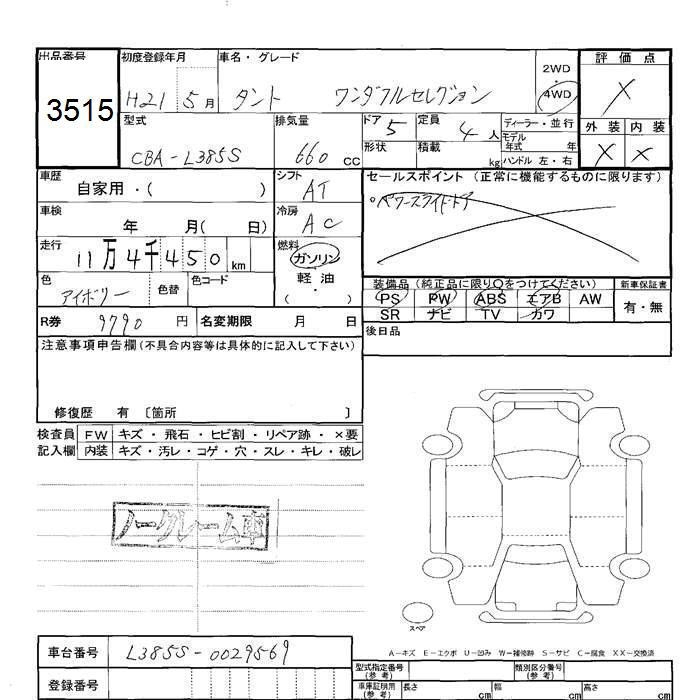 出品番号 初度登録年月 車名・グレード 評価点
3515 H21 5月 タント ワンダフルセレクション 2WD・4WD X
型式 排気量 ドア 5 定員 4人 ディーラー・並行 外装 内装
CBA-L385S 660cc 形状 積載 kg モデル年式 年 X X
ハンドル 左・右
車歴 自家用・( ) シフト AT セールスポイント (正常に機能するものに限ります)
車検 年 月( 日) 冷房 AC 。パワースライドドア
走行 11万4千450km 燃料 ガソリン
軽油
・( )
色 アイボリー 色替 色コード 装備品(純正品に限り○をつけてください) 新車保証書
PS PW ABS エアB AW 有・無
R券 9790円 名変期限 月 日 SR ナビ TV カワ
注意事項申告欄(不具合内容等は具体的に記入して下さい) 後日品
修復歴 有 〔箇所 〕
検査員 FW キズ・飛石・ヒビ割・リペア跡・×要
記入欄 内装 キズ・汚レ・コゲ・穴・スレ・キレ・破レ
ノークレーム車
スペア
A-キズ E-エクボ U-凹み W-補修跡 S-サビ C-腐食 XX-交換済
車台番号 L385S-0029569 型式指定番号(参考) 類別区分番号(参考)
登録番号 車庫証明用(参考) 長さ cm 幅 cm 高さ cm